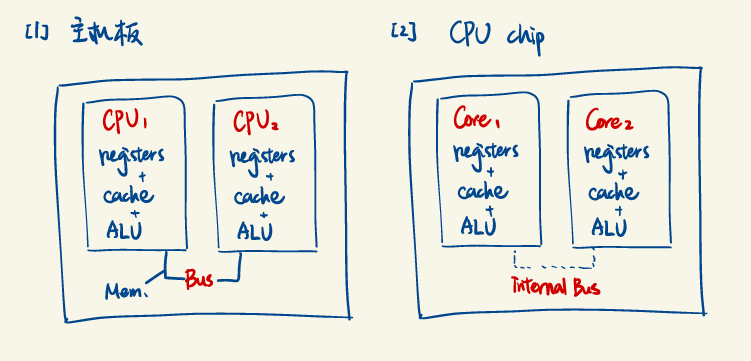 [1] 主机板
CPU1
registers
+
cache
+
ALU
CPU2
registers
+
cache
+
ALU
Mem.
Bus
[2] CPU chip
Core1
registers
+
cache
+
ALU
Core2
registers
+
cache
+
ALU
Internal Bus